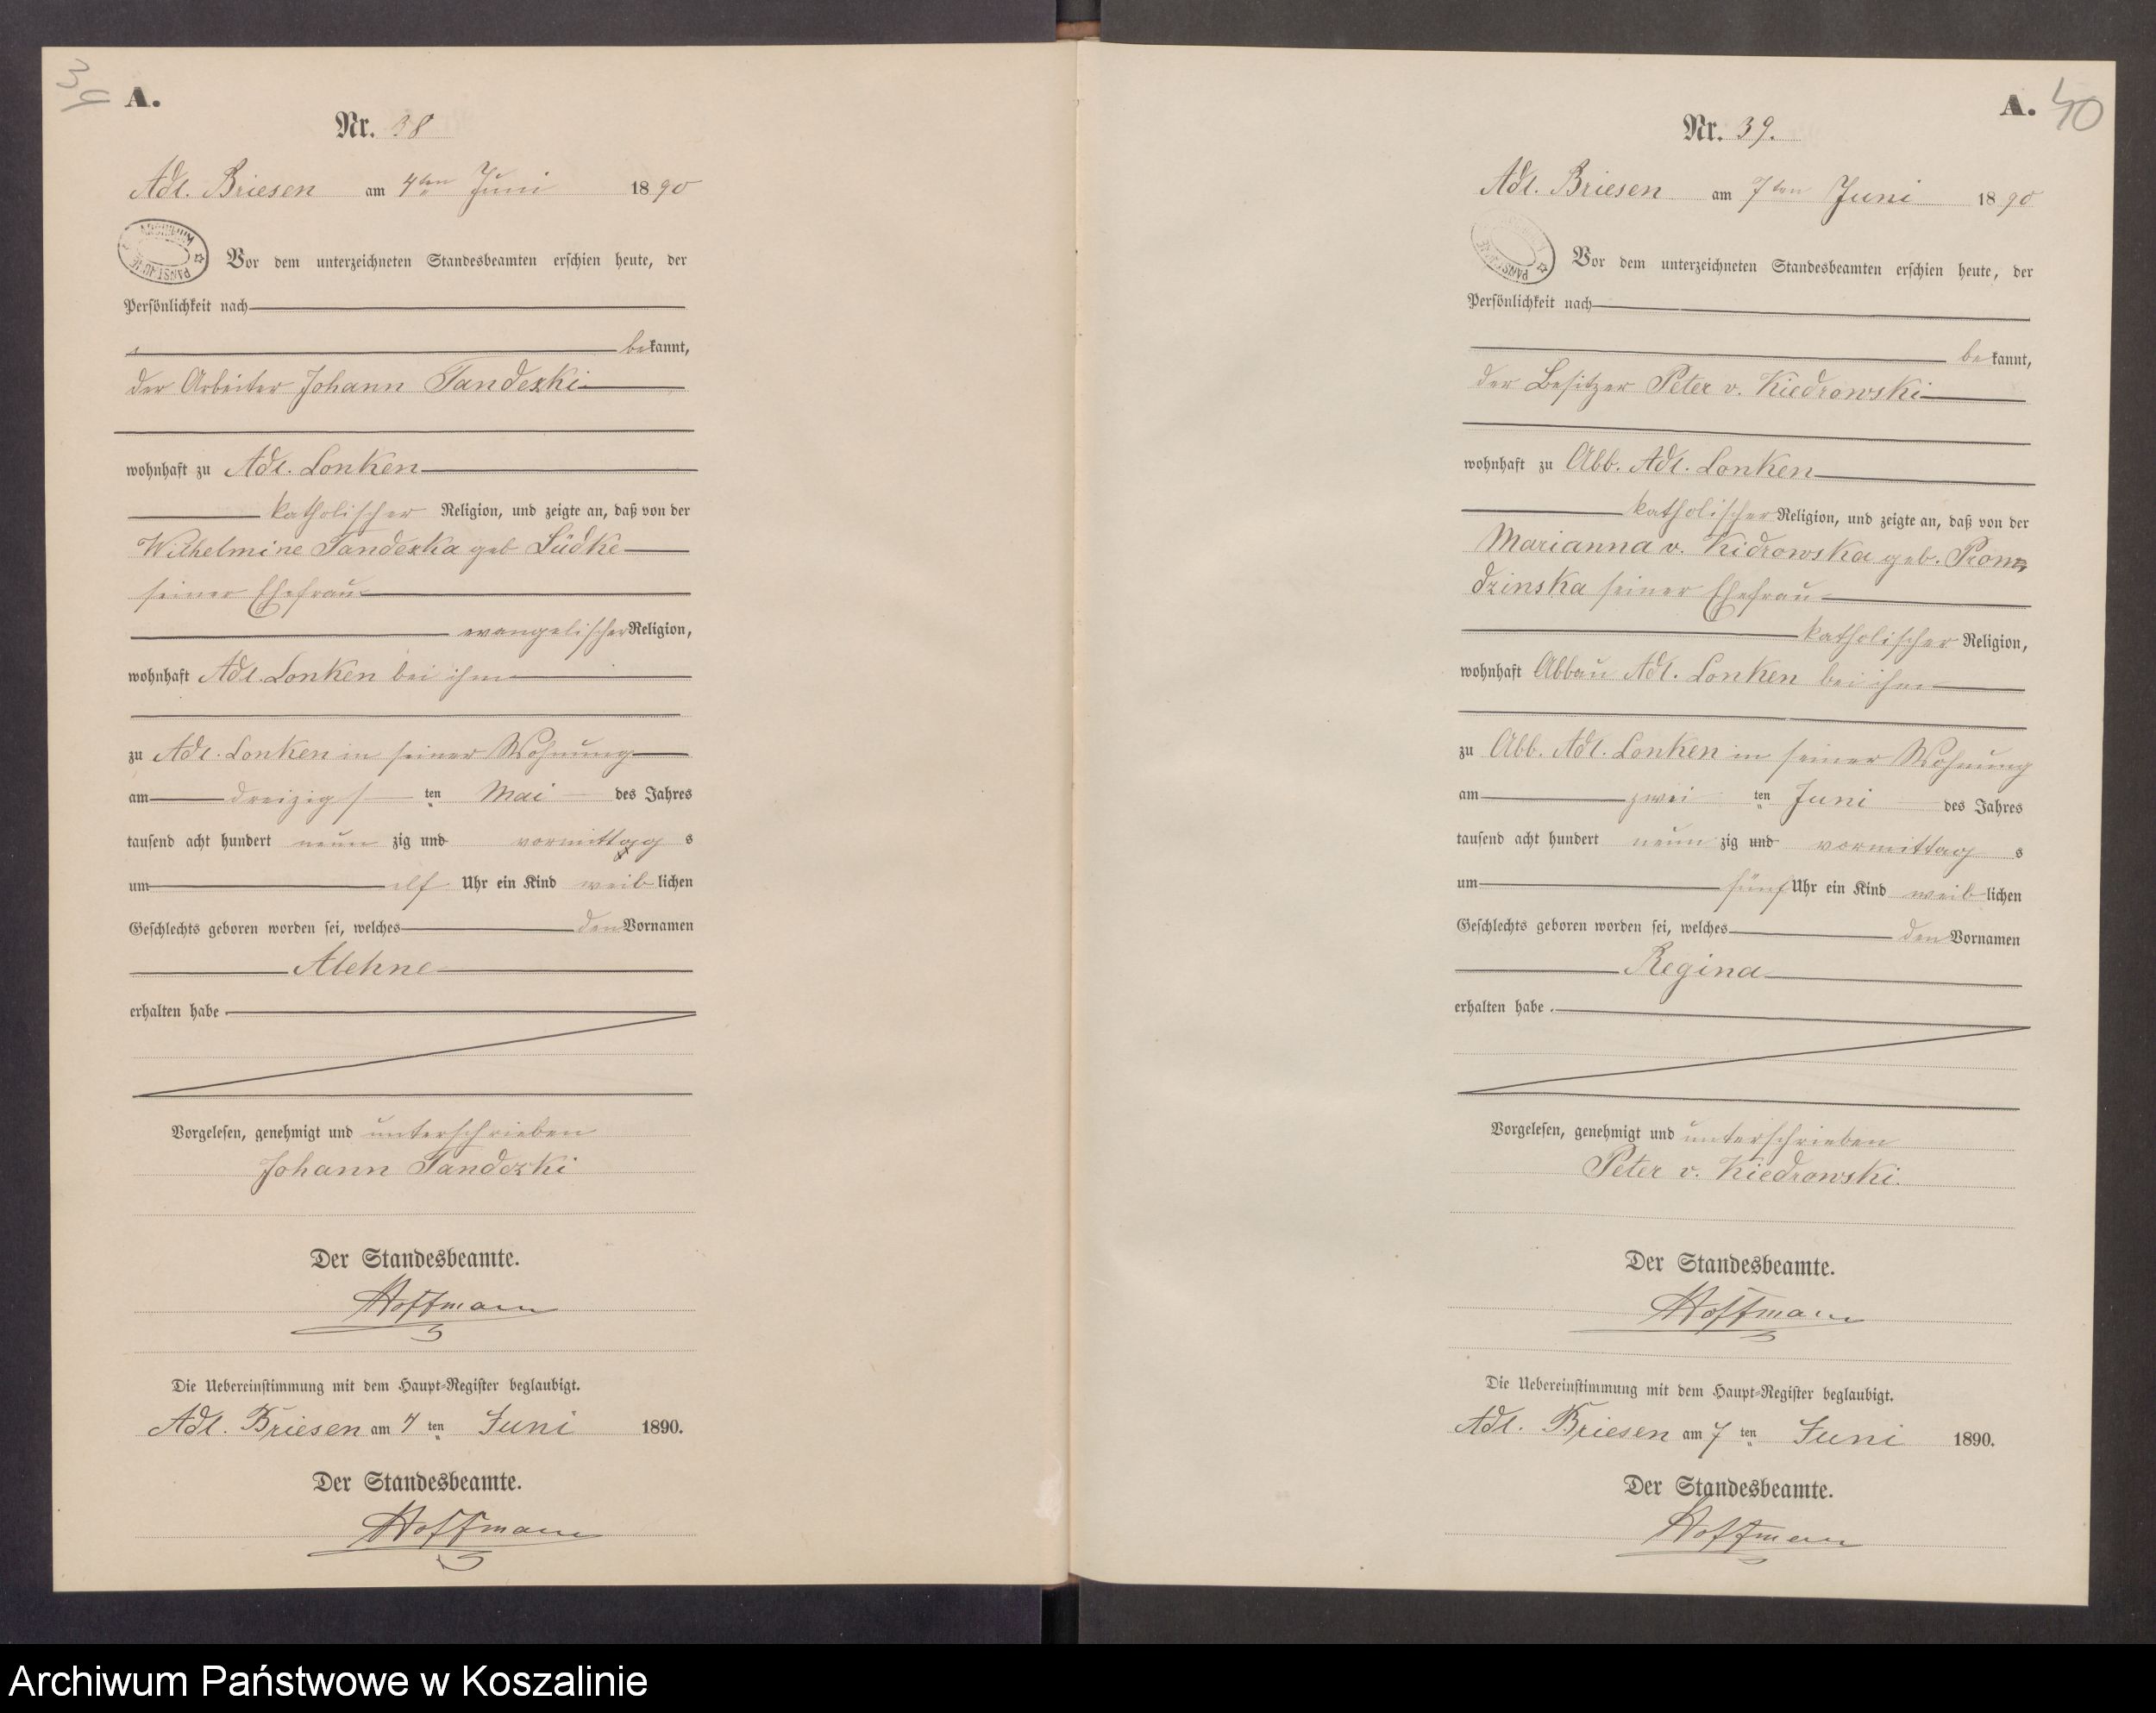 39
A.
Nr. 38
Adl. Briesen am 4ten Juni 1890
Vor dem unterzeichneten Standesbeamten erschien heute, der
Persönlichkeit nach
bekannt,
der Arbeiter Johann Tandezki
wohnhaft zu Adl. Lonken
katholischer Religion, und zeigte an, daß von der
Wilhelmine Tandezka geb Lüdke
seiner Ehefrau
evangelischer Religion,
wohnhaft Adl. Lonken bei ihm
zu Adl. Lonken in seiner Wohnung
am dreizigs ten Mai des Jahres
tausend acht hundert neun zig und vormittag s
um elf Uhr ein Kind weiblichen
Geschlechts geboren worden sei, welches den Vornamen
erhalten habe.
Vorgelesen, genehmigt und unterschrieben
Johann Tandezki
Der Standesbeamte.
Hoffmann
Die Uebereinstimmung mit dem Haupt-Register beglaubigt.
Adl. Briesen am 4 ten Juni 1890.
Der Standesbeamte.
Hoffmann
A. 40
Nr. 39.
Adl. Briesen am 7ten Juni 1890
Vor dem unterzeichneten Standesbeamten erschien heute, der
Persönlichkeit nach
bekannt,
der Besitzer Peter v. Kiedrowski
wohnhaft zu Abb. Adl. Lonken
katholischer Religion, und zeigte an, daß von der
Marianna v. Kidrowska geb. Prom
dzinska seiner Ehefrau
katholischer Religion,
wohnhaft Abbau Adl. Lonken bei ihm
zu Abb. Adl. Lonken in seiner Wohnung
am zwei ten Juni des Jahres
tausend acht hundert neun zig und vormittag s
um fünf Uhr ein Kind weiblichen
Geschlechts geboren worden sei, welches den Vornamen
Regina
erhalten habe.
Vorgelesen, genehmigt und unterschrieben
Peter v. Kiedrowski.
Der Standesbeamte.
Hoffmann
Die Uebereinstimmung mit dem Haupt-Register beglaubigt.
Adl. Briesen am 7 ten Juni 1890.
Der Standesbeamte.
Hoffmann
Archiwum Państwowe w Koszalinie